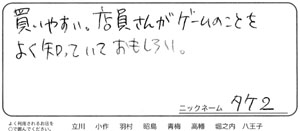 買いやすい。店員さんがゲームのことを
よく知っていておもしろい。
ニックネーム タケ2
よく利用されるお店を
○で囲んでください。 立川 小作 羽村 昭島 青梅 高幡 堀之内 八王子